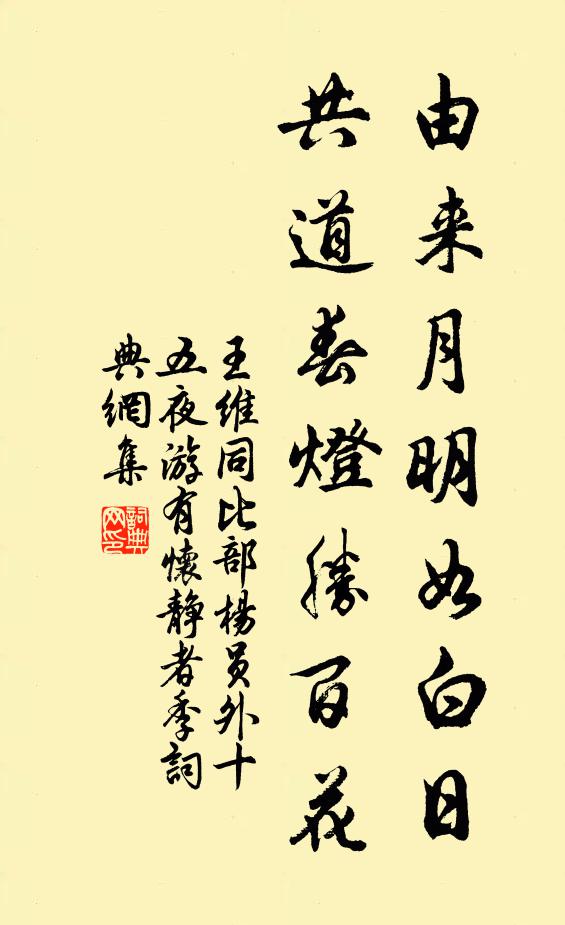 由来月明如白日
共道春燈勝百花
王維同比部楊員外十
五夜游有懷靜者季詞
典網集
詞典网印